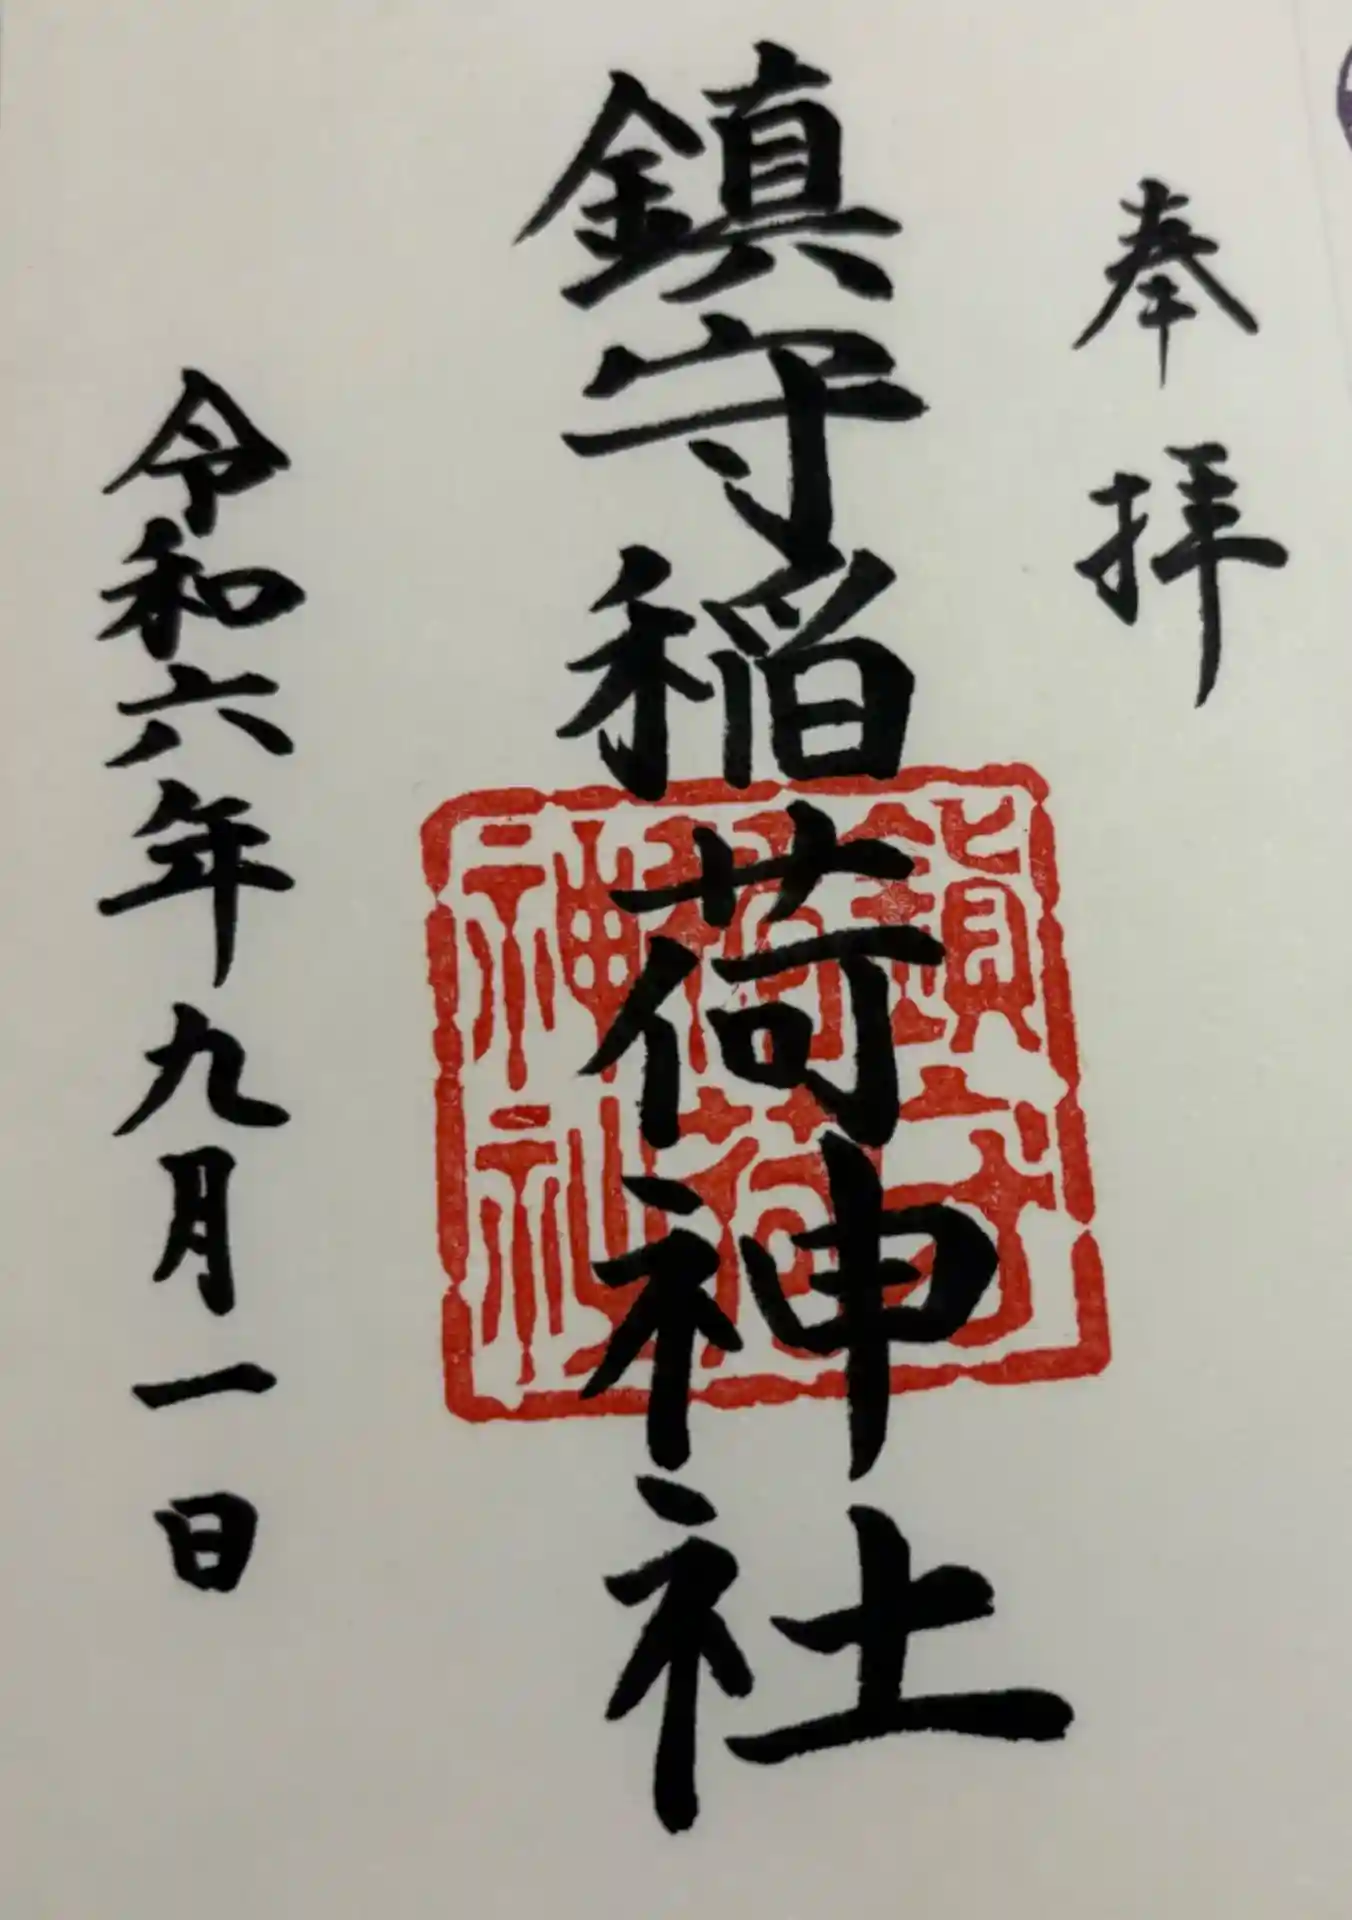 奉拝
鎮守稲荷神社
鎮守稲荷神社
令和六年九月一日